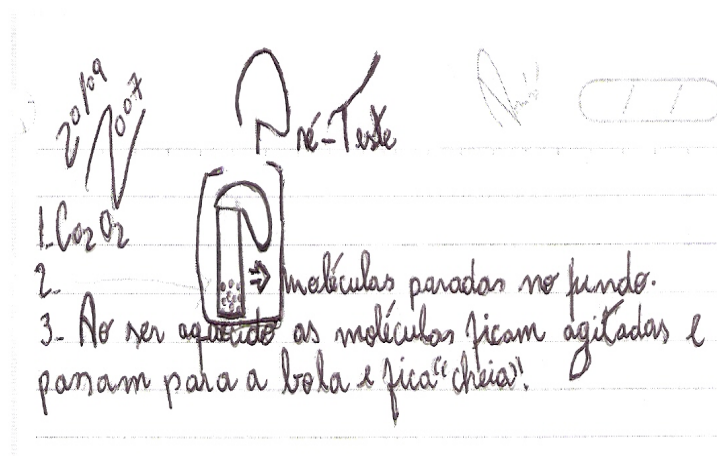 20/09
2007
Pré-Teste
1. Co2 O2
2.
⇒ moléculas paradas no fundo.
3- Ao ser aquecido as moléculas ficam agitadas e
passam para a bola e fica "cheia".